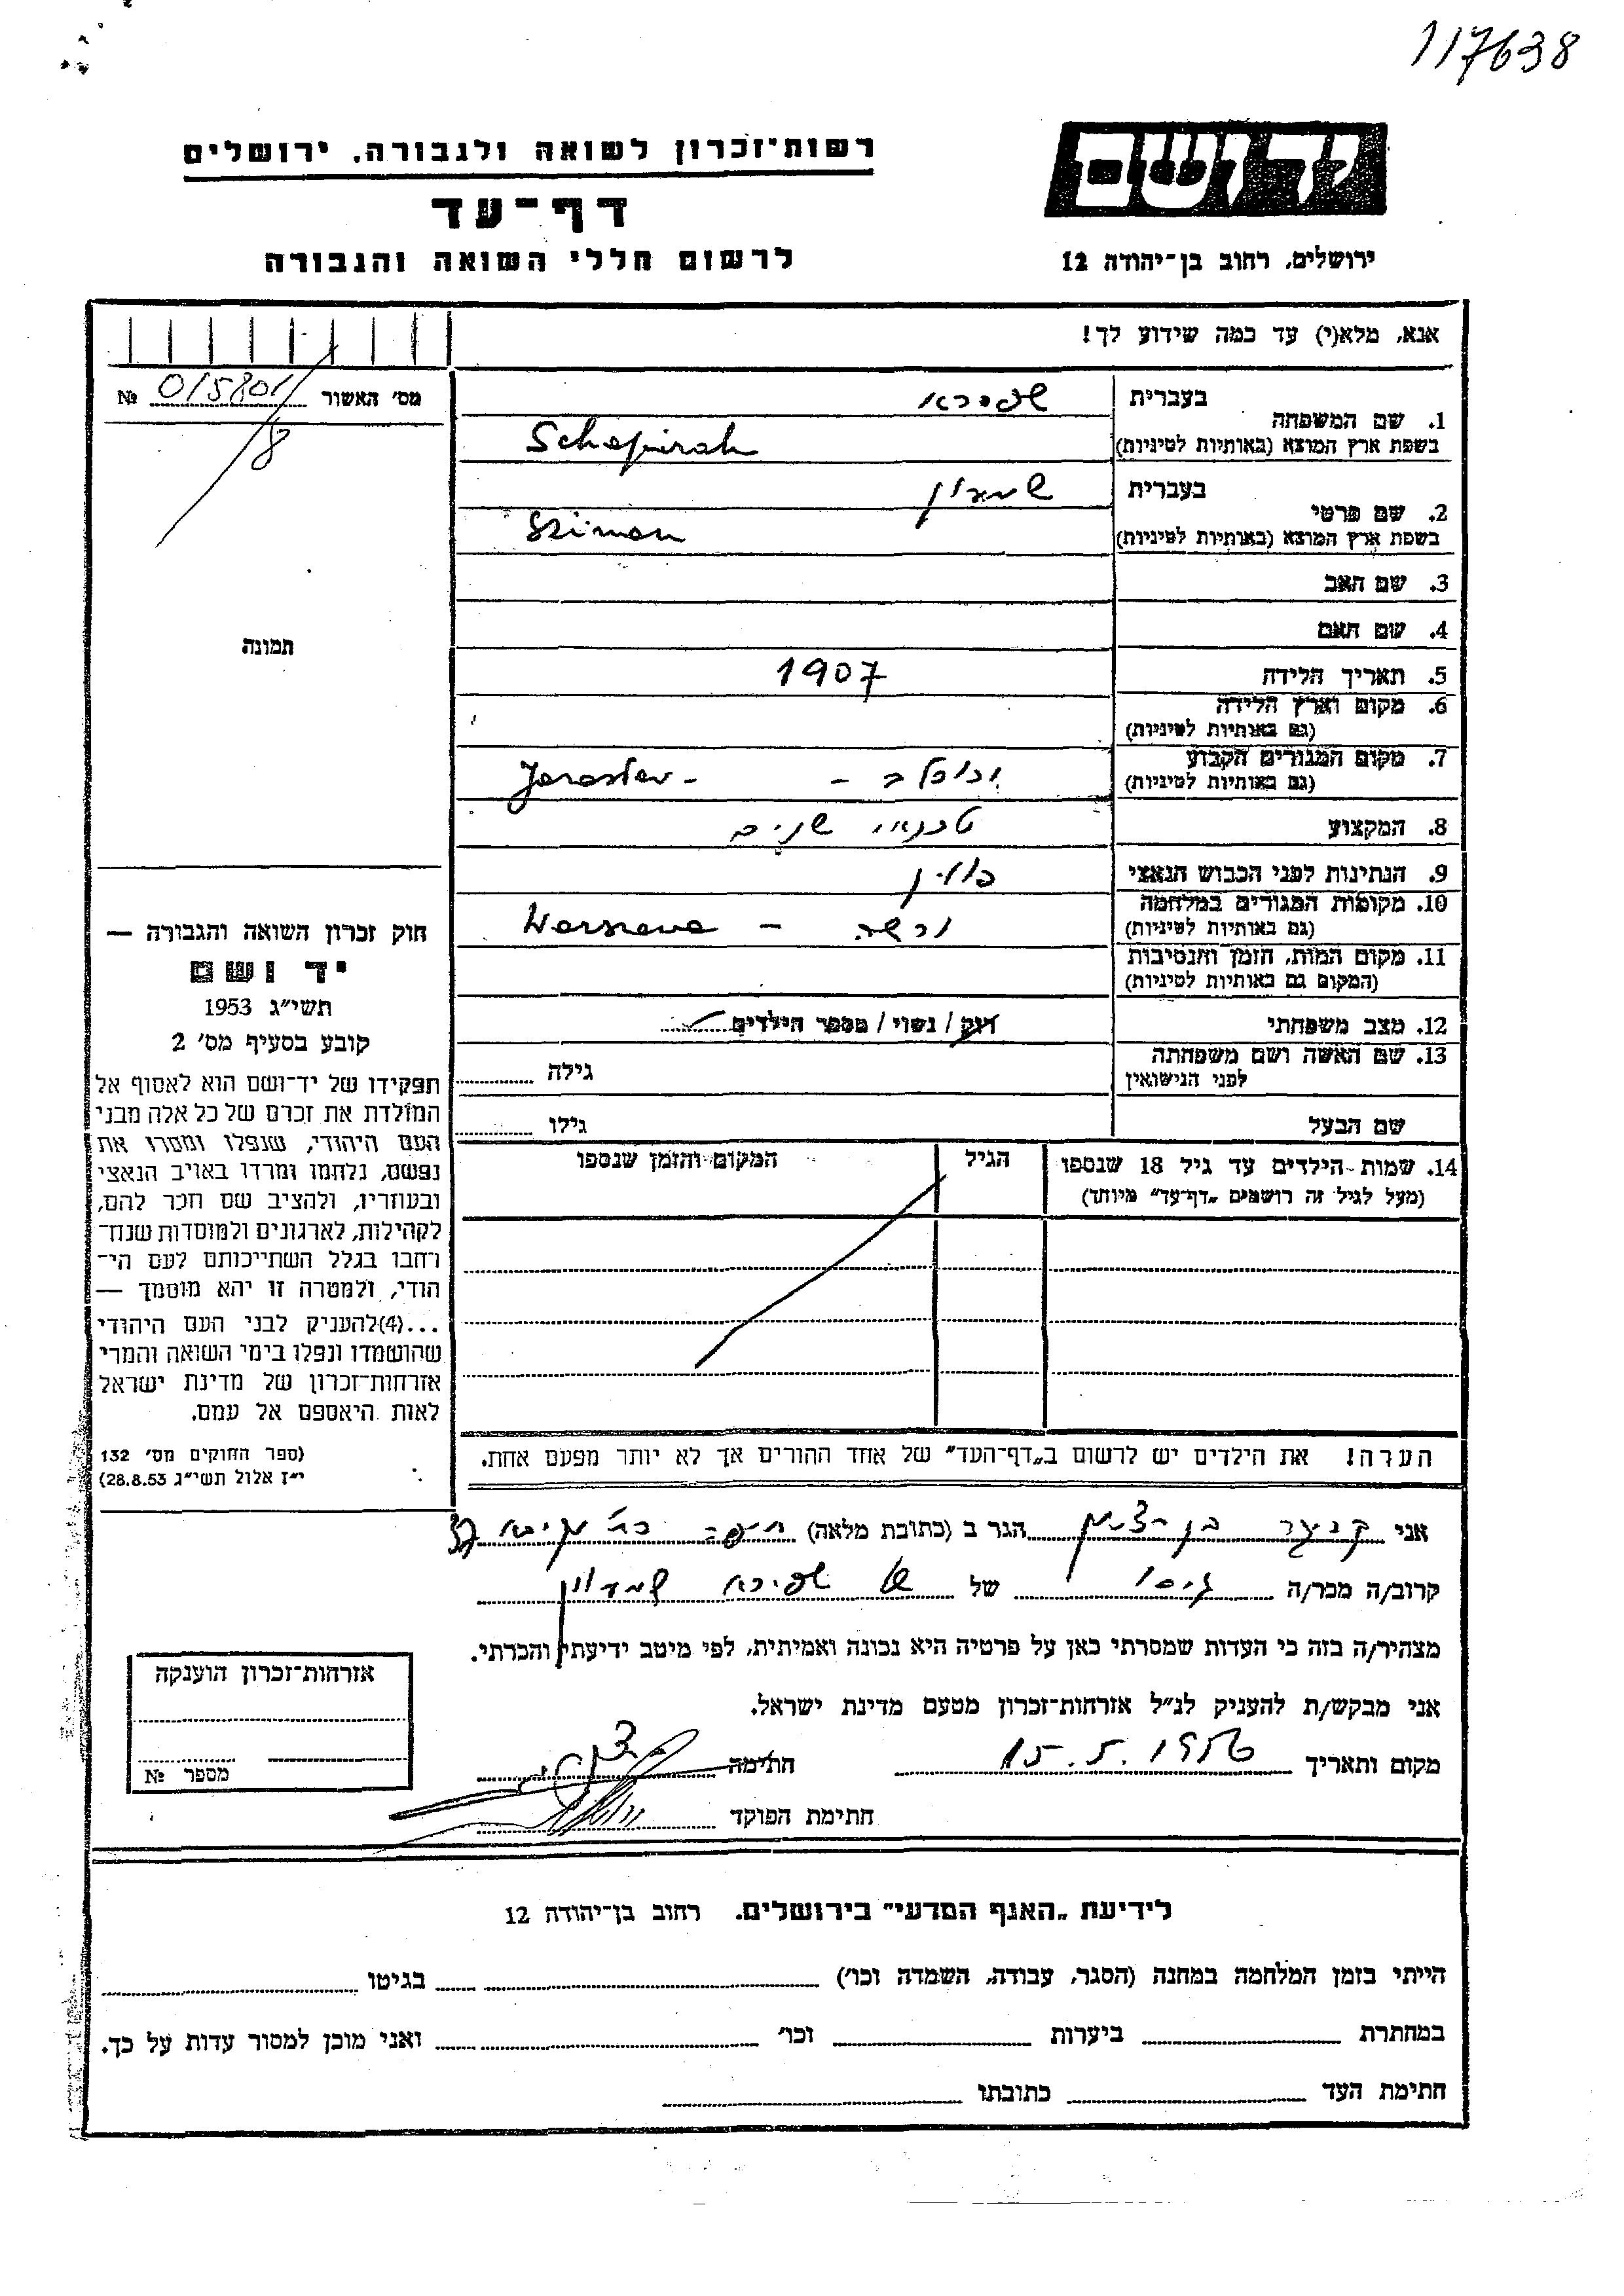 117638
יד ושם
ירושלים, רחוב בן־יהודה 12
רשות־זכרון לשואה ולגבורה, ירושלים
דף־עד
לרשום חללי השואה והגבורה
אנא, מלא(י) עד כמה שידוע לך!
1. שם המשפחה
בעברית שפירא
בשפת ארץ המוצא (באותיות לטיניות) Schapirah
2. שם פרטי
בעברית שמעון
בשפת ארץ המוצא (באותיות לטיניות) Szimon
3. שם האב
4. שם האם
5. תאריך הלידה 1907
6. מקום וארץ הלידה
(גם באותיות לטיניות)
7. מקום המגורים הקבוע
(גם באותיות לטיניות) - Jaroslav -
8. המקצוע טכנאי שנים
9. הנתינות לפני הכבוש הנאצי פולין
10. מקומות המגורים במלחמה
(גם באותיות לטיניות) ורשה - Warszawa
11. מקום המות, הזמן והנסיבות
(המקום גם באותיות לטיניות)
12. מצב משפחתי רוק / נשוי / מספר הילדים
13. שם האשה ושם משפחתה
לפני הנישואין גילה
שם הבעל גילו
14. שמות הילדים עד גיל 18 שנספו הגיל המקום והזמן שנספו
(מעל לגיל זה רושמים „דף־עד” מיוחד)
הערה! את הילדים יש לרשום ב„דף־העד” של אחד ההורים אך לא יותר מפעם אחת.
מס׳ האשור 015801 №
8
תמונה
חוק זכרון השואה והגבורה —
יד ושם
תשי״ג 1953
קובע בסעיף מס׳ 2
תפקידו של יד־ושם הוא לאסוף אל
המולדת את זכרם של כל אלה מבני
העם היהודי, שנפלו ומסרו את
נפשם, נלחמו ומרדו באויב הנאצי
ובעוזריו, ולהציב שם וזכר להם,
לקהילות, לארגונים ולמוסדות שנח־
רחבו בגלל השתייכותם לעם הי־
הודי, ולמטרה זו יהא מוסמך —
...(4)להעניק לבני העם היהודי
שהושמדו ונפלו בימי השואה והמרי
אזרחות־זכרון של מדינת ישראל
לאות היאספם אל עמם.
(ספר החוקים מס׳ 132
י״ז אלול תשי״ג 28.8.53)
אני בן-ציון הגר ב (כתובת מלאה) חיפה
קרוב/ה מכר/ה גיסו של שפירא שמעון
מצהיר/ה בזה כי העדות שמסרתי כאן על פרטיה היא נכונה ואמיתית, לפי מיטב ידיעתי והכרתי.
אני מבקש/ת להעניק לנ״ל אזרחות־זכרון מטעם מדינת ישראל.
מקום ותאריך 15.5.1956 חתימה
חתימת הפוקד
אזרחות־זכרון הוענקה
מספר №
לידיעת „האגף המדעי” בירושלים. רחוב בן־יהודה 12
הייתי בזמן המלחמה במחנה (הסגר, עבודה, השמדה וכו׳) בגיטו
במחתרת ביערות וכו׳ ואני מוכן למסור עדות על כך.
חתימת העד כתובתו